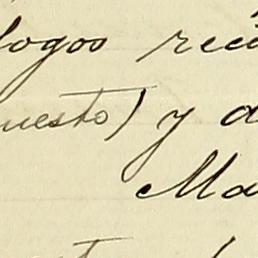 logos rec
uesto) y a
Ma